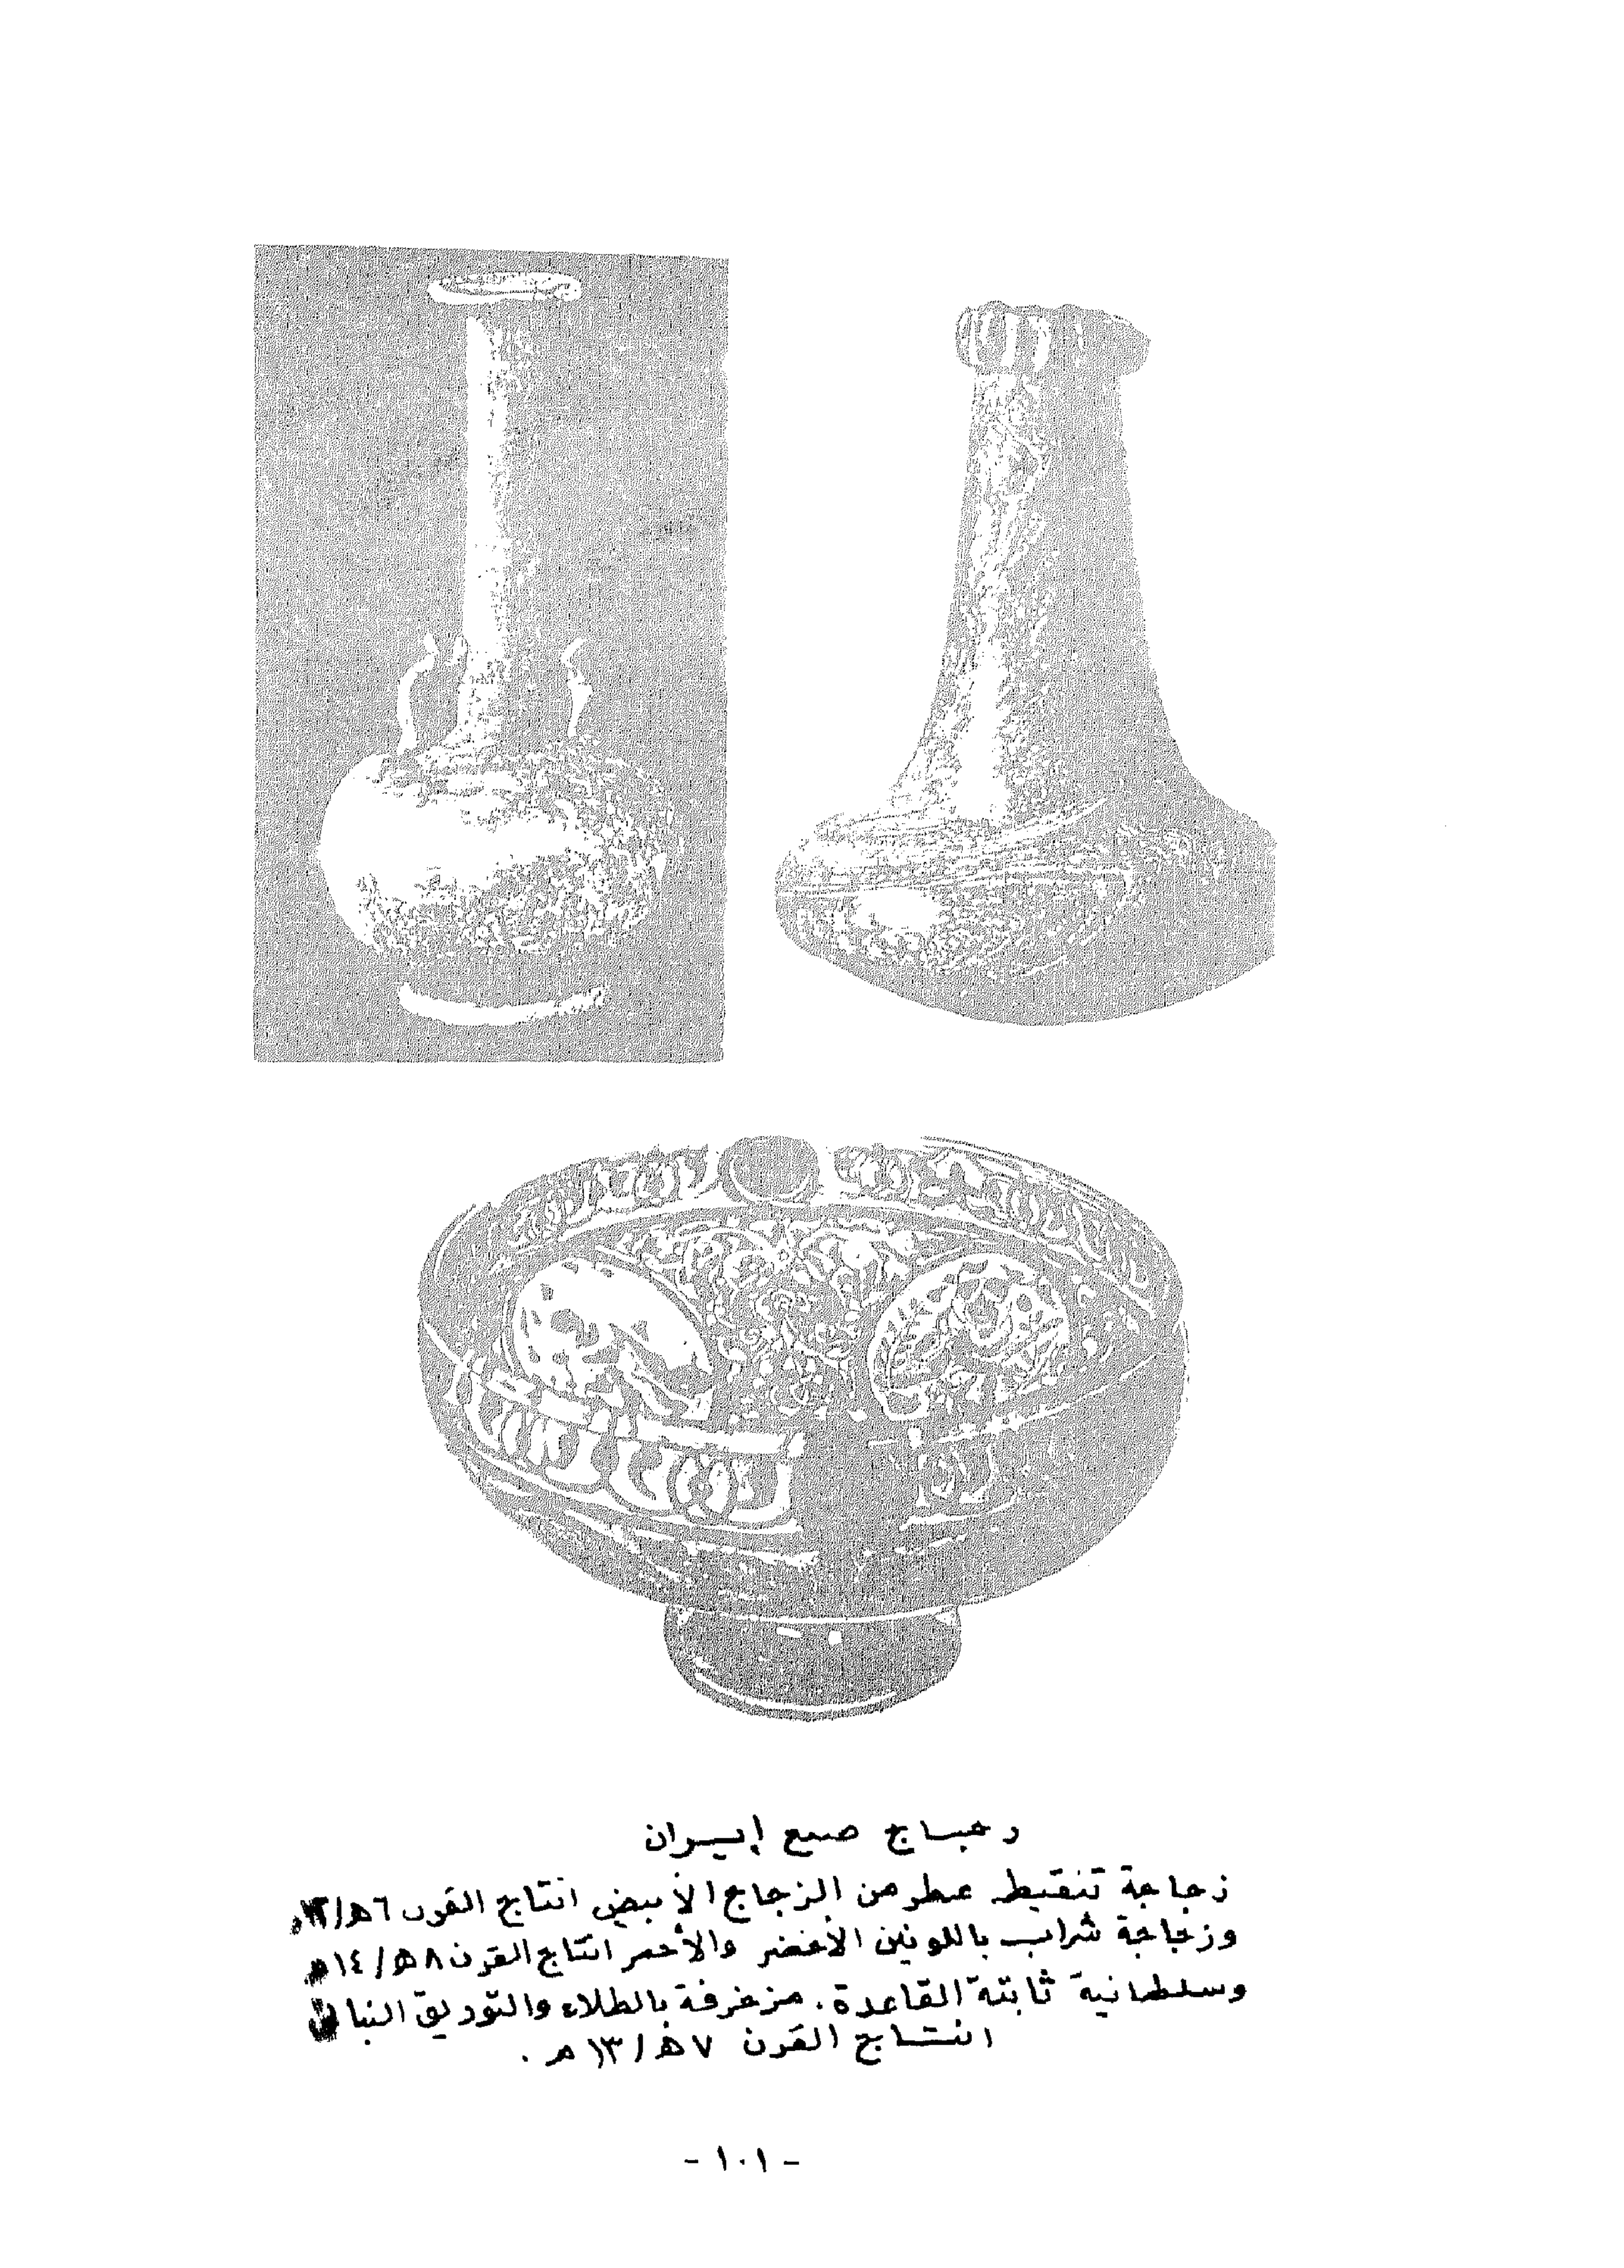 زجاج صنع إيران
زجاجة تنقيط عطر من الزجاج الأبيض انتاج القرن ٦ه/١٢م
وزجاجة شراب باللونين الأخضر والأحمر انتاج القرن ٨ه/١٤م
وسلطانية ثابتة القاعدة. مزخرفة بالطلاء والتوريق النباتى
انتاج القرن ٧ه/١٣م.
- ١٠١ -